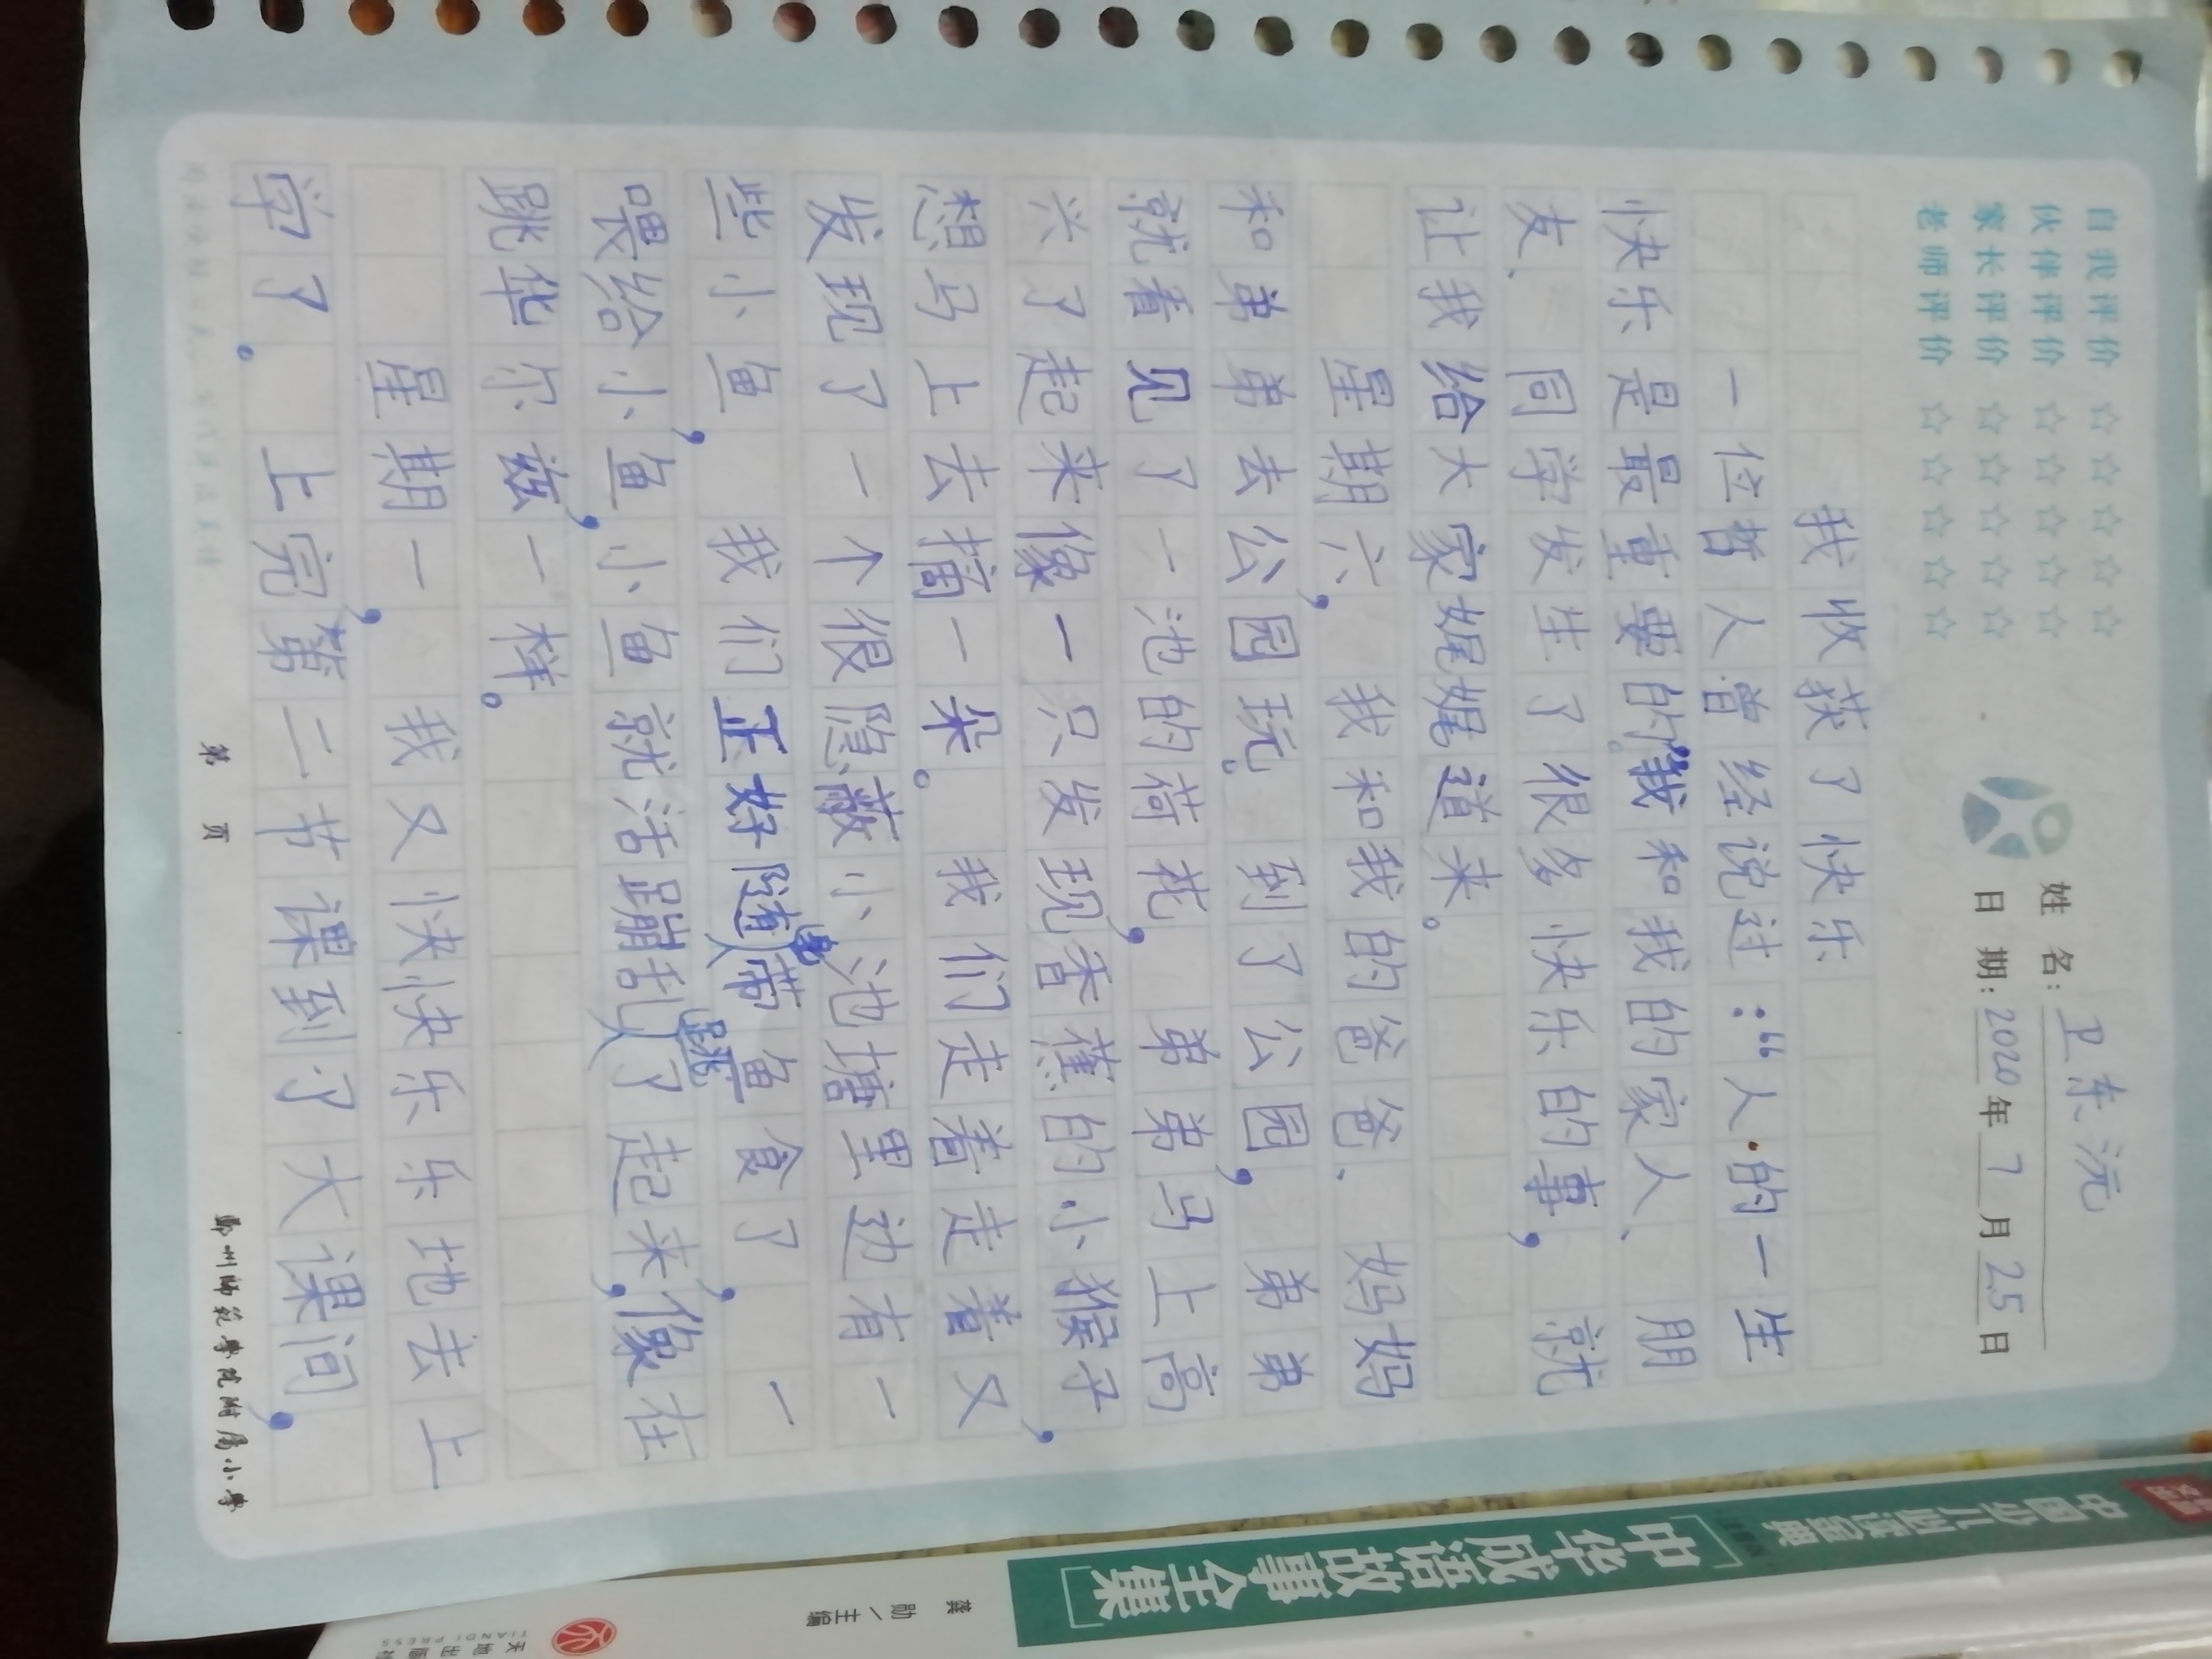 自我评价 ☆☆☆☆☆
伙伴评价 ☆☆☆☆☆
家长评价 ☆☆☆☆☆
老师评价 ☆☆☆☆☆
姓 名: 卫东沅
日 期: 2020年7月25日
我收获了快乐
一位哲人曾经说过:“人的一生
快乐是最重要的。”我和我的家人、朋
友、同学发生了很多快乐的事,就
让我给大家娓娓道来。
星期六,我和我的爸爸、妈妈
和弟弟去公园玩。到了公园,弟弟
就看见了一池的荷花,弟弟马上高
兴了起来像一只发现香蕉的小猴子,
想马上去摘一朵。我们走着走着又
发现了一个很隐蔽小池塘里边有一
些小鱼,我们正好随身带鱼食了,一
喂给小鱼,小鱼就活蹦乱跳了起来,像在
跳华尔兹一样。
星期一,我又快快乐乐地去上
学了。上完第二节课到了大课间,
第 页
郑州师范学院附属小学
中国少儿必读金典
中华成语故事全集
龚 勋/主编
TIANDI PRESS